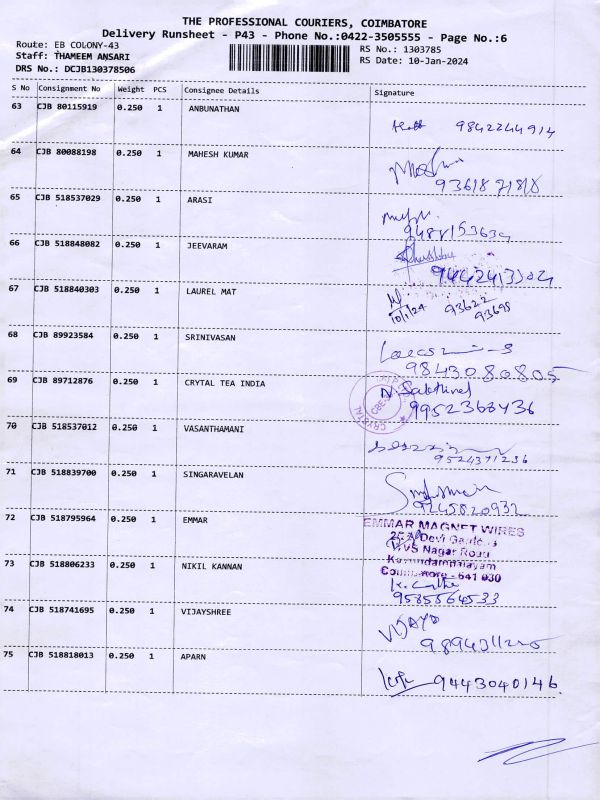 THE PROFESSIONAL COURIERS, COIMBATORE
Delivery Runsheet - P43 - Phone No.:0422-3505555 - Page No.:6
Route: EB COLONY-43
Staff: THAMEEM ANSARI
DRS No.: DCJB130378506
RS No.: 1303785
RS Date: 10-Jan-2024
S No Consignment No Weight PCS Consignee Details Signature
63 CJB 80115919 0.250 1 ANBUNATHAN
9842244914
64 CJB 80088198 0.250 1 MAHESH KUMAR
65 CJB 518537029 0.250 1 ARASI
66 CJB 518848082 0.250 1 JEEVARAM
67 CJB 518840303 0.250 1 LAUREL MAT
10/1/24 93622
93698
68 CJB 89923584 0.250 1 SRINIVASAN
9843080805
69 CJB 89712876 0.250 1 CRYTAL TEA INDIA
N. Sakthivel
9952368436
70 CJB 518537012 0.250 1 VASANTHAMANI
9524371236
71 CJB 518839700 0.250 1 SINGARAVELAN
9245820932
72 CJB 518795964 0.250 1 EMMAR
EMMAR MAGNET WIRES
Devi Gardens
VVS Nagar Road
Kavundampalayam
Coimbatore - 641 030
73 CJB 518806233 0.250 1 NIKIL KANNAN
9585564533
74 CJB 518741695 0.250 1 VIJAYSHREE
VIJAYA
75 CJB 518818013 0.250 1 APARN
9443040146